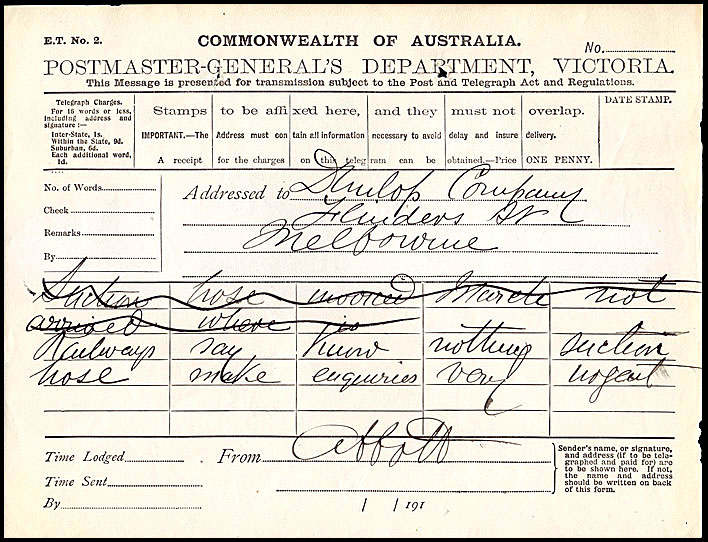 E.T. No. 2.
COMMONWEALTH OF AUSTRALIA.
No.
POSTMASTER-GENERAL'S DEPARTMENT, VICTORIA.
This Message is presented for transmission subject to the Post and Telegraph Act and Regulations.
Telegraph Charges.
For 16 words or less,
including address and
signature :—
Inter-State, 1s.
Within the State, 9d.
Suburban, 6d.
Each additional word,
1d.
Stamps to be affixed here, and they must not overlap.
IMPORTANT.—The Address must contain all information necessary to avoid delay and insure delivery.
A receipt for the charges on this telegram can be obtained.—Price ONE PENNY.
DATE STAMP.
No. of Words
Check
Remarks
By
Addressed to Dunlop Company
Flinders St
Melbourne
Suction hose invoiced March not
arrived where is
Railways say know nothing suction
hose make enquiries very urgent
Time Lodged
Time Sent
By
From Abbott
Sender's name, or signature,
and address (if to be tele-
graphed and paid for) are
to be shown here. If not,
the name and address
should be written on back
of this form.
/ / 191